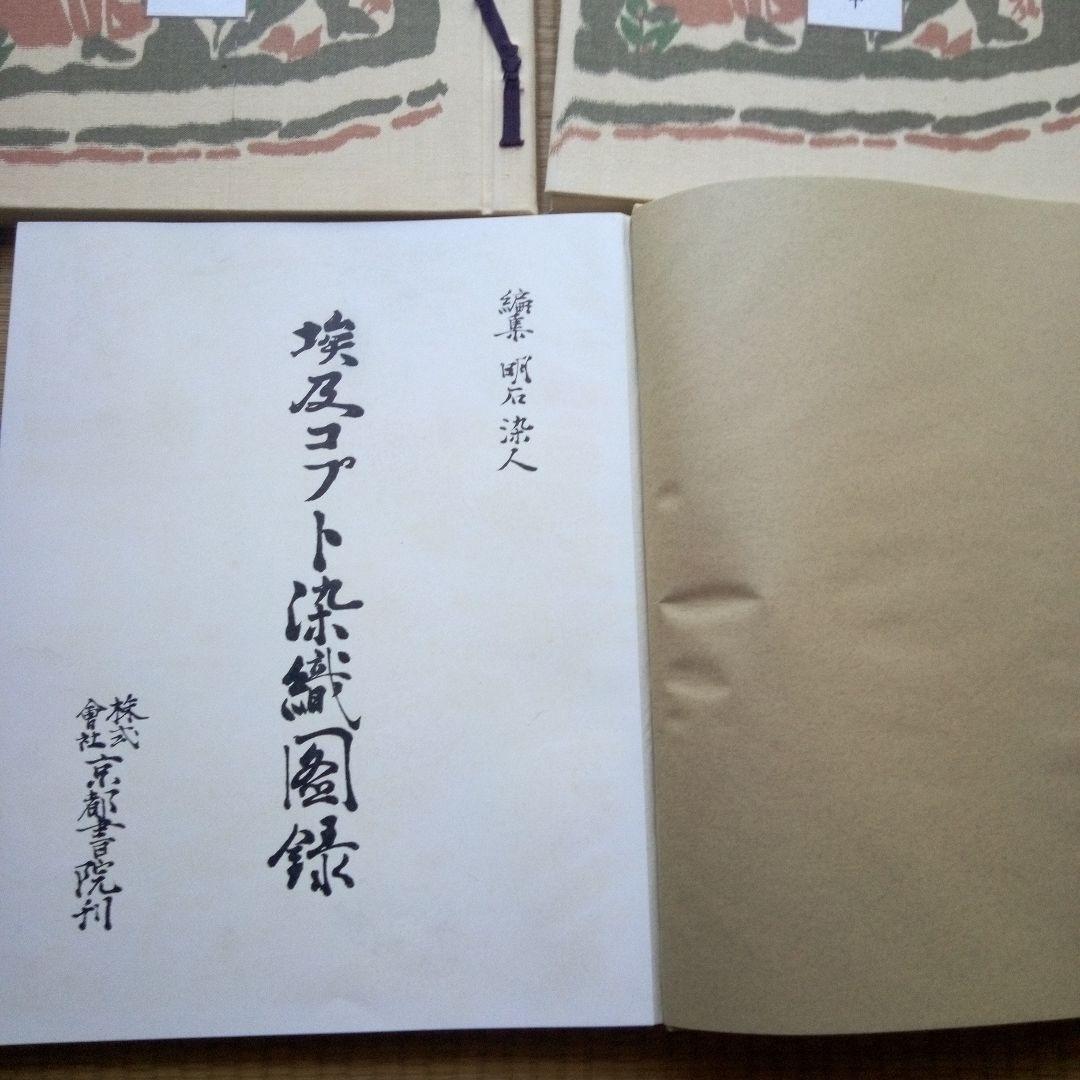 編集 明石染人
埃及コプト染織図録
株式會社京都書院刊